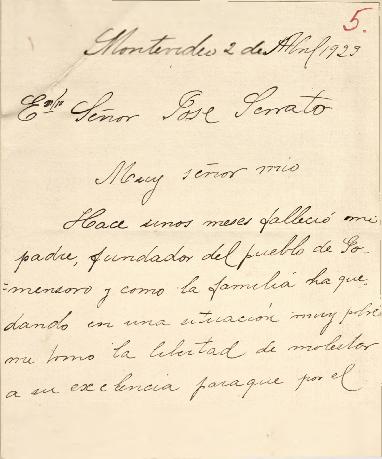 5.
Montevideo 2 de Abril 1923
Exmo Señor José Serrato
Muy señor mio
Hace unos meses falleció mi
padre, fundador del pueblo de Go-
=mensoro y como la familiá ha que-
dando en una situación muy pobre
me tomo la libertad de molestar
a su exelencia paraque por el